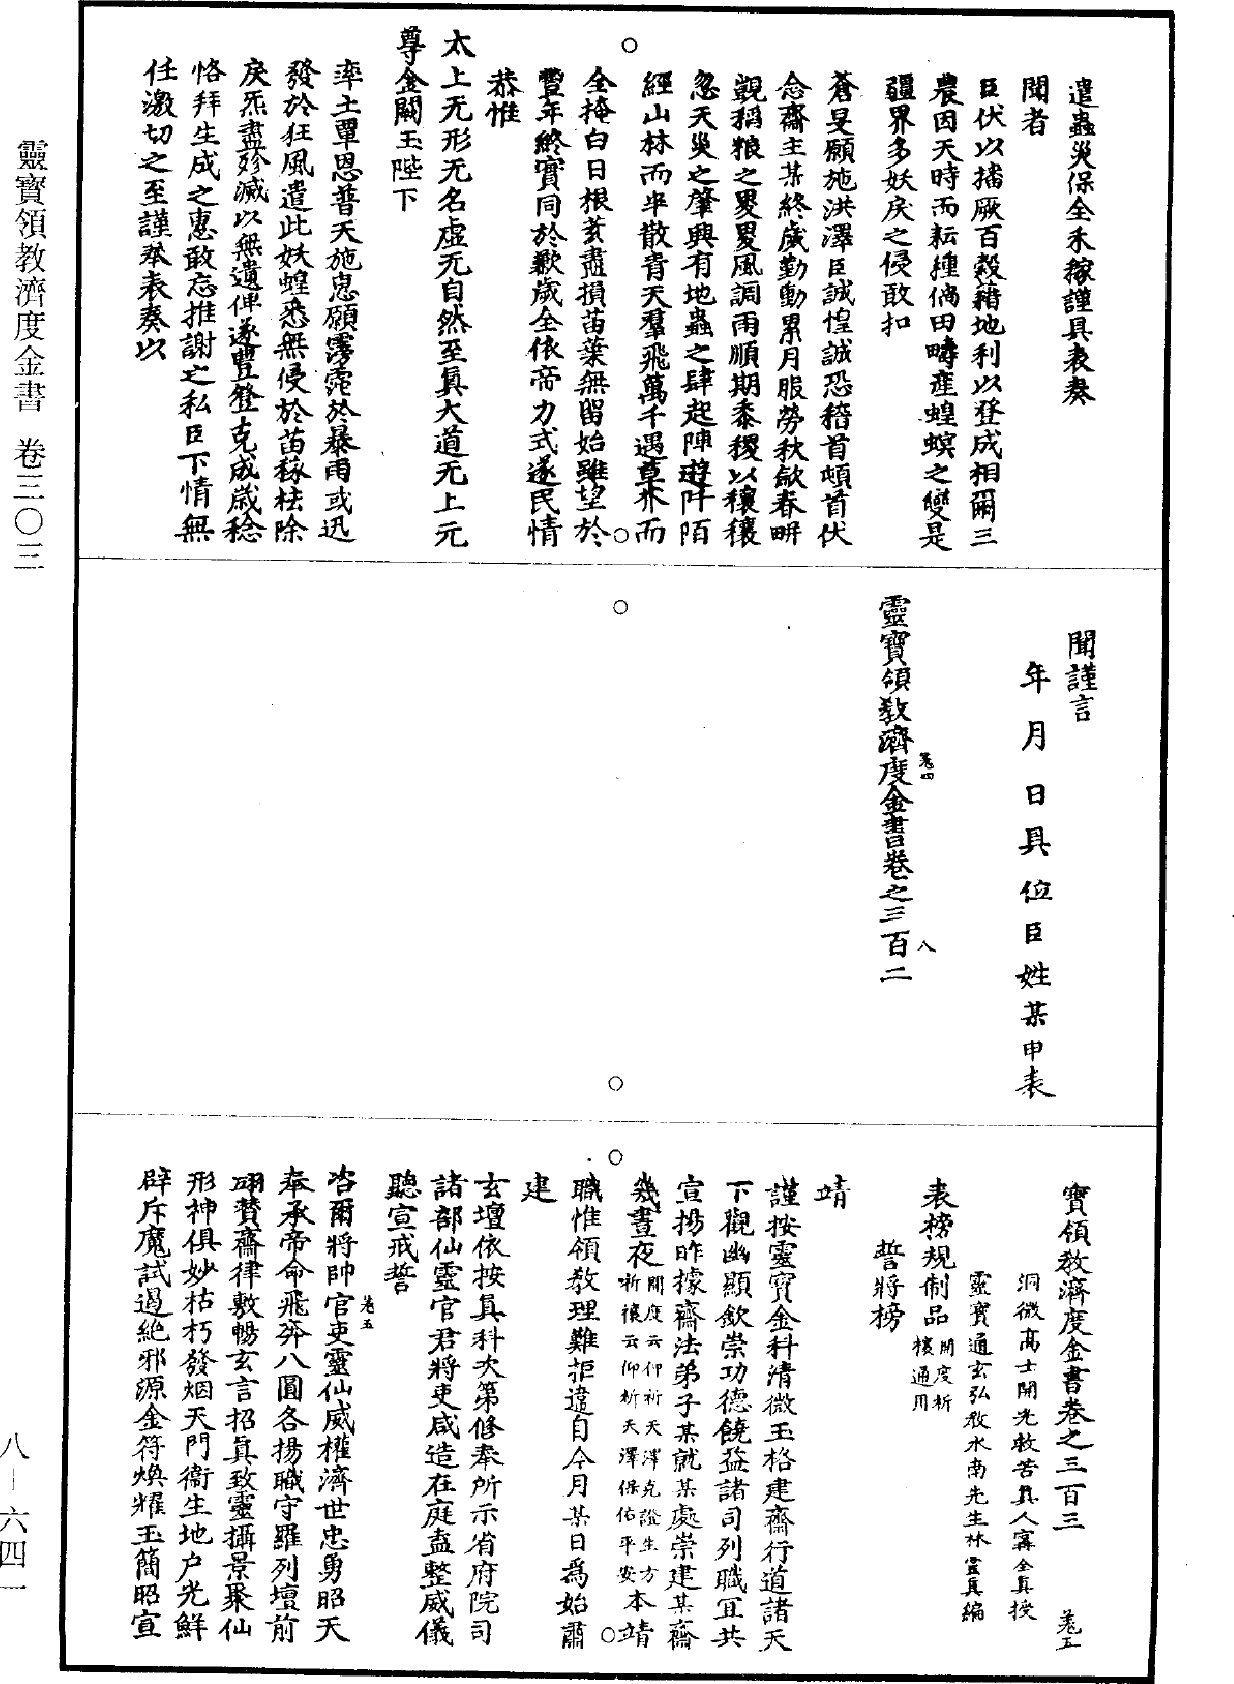 靈寶領教濟度金書 卷三〇三
八—六四一
遣蟲災保全禾稼謹具表奏
聞者
臣伏以播厥百穀藉地利以登成相爾三
農因天時而耘種倘田疇產蝗螟之變是
疆界多妖戾之侵敢扣
蒼旻願施洪澤臣誠惶誠恐稽首頓首伏
念齋主某終歲勤動累月服勞秋斂春畊
觀稻粮之畟畟風調雨順期黍稷以穰穰
忽天災之肇興有地蟲之肆起陣遊阡陌
經山林而半散青天羣飛萬千遇草木而
全掩白日根荄盡損苗葉無留始雖望於
豐年終實同於歉歲全依帝力式遂民情
恭惟
太上无形无名虛无自然至眞大道无上元
尊金闕玉陛下
率土覃恩普天施惠願霶霈於暴雨或迅
發於狂風遣此妖蝗悉無侵於苗稼袪除
戾炁盡殄滅以無遺俾遂豐登克成歲稔
恪拜生成之惠敢忘推謝之私臣下情無
任激切之至謹奉表奏以
聞謹言
年月日具位臣姓某申表
靈寶領教濟度金書卷之三百二
卷四 八
寶領教濟度金書卷之三百三 卷五
洞微高士開光救苦眞人甯全眞授
靈寶通玄弘教水南先生林靈眞編
表榜規制品開度祈禳通用
誓將榜
靖
謹按靈寶金科清微玉格建齋行道諸天
下觀幽顯欽崇功德饒益諸司列職宜共
宣揚昨據齋法弟子某就某處崇建某齋
幾晝夜開度云仰祈天澤克證生方祈禳云仰祈天澤保佑平安本靖
職惟領教理難拒違自今月某日爲始肅
建
玄壇依按眞科次第修奉所示省府院司
諸部仙靈官君將吏咸造在庭盍整威儀
聽宣戒誓
卷五
咨爾將帥官吏靈仙威權濟世忠勇昭天
奉承帝命飛奔八圓各揚職守羅列壇前
翊贊齋律敷暢玄言招眞致靈攝景聚仙
形神俱妙枯朽發烟天門衞生地户光鮮
辟斥魔試遏絕邪源金符煥耀玉簡昭宣